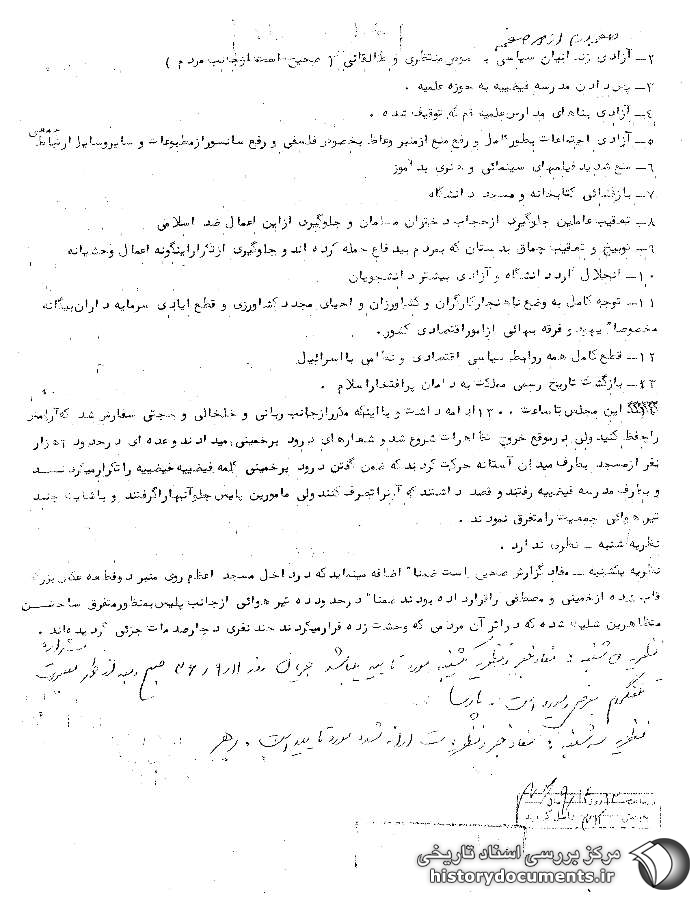 ۲ــ آزادی زندانیان سیاسی بخصوص منتظری و طالقانی ( صحیح است ازجانب مردم )
۳ــ پس دادن مدرسه فیضیه به حوزه علمیه .
۴ــ آزادی بناهای مدارس علمیه قم که توقیف شده .
۵ــ آزادی اجتماعات بطور کامل و رفع منع ازمنبر وعاظ بخصوص فلسفی و رفع سانسور ازمطبوعات و سایر وسایل ارتباط جمعی
۶ــ منع شدید فیلمهای سینمائی و بدآموز
۷ــ بازگشائی کتابخانه و مسجد دانشگاه
۸ــ تعقیب عاملین جلوگیری ازحجاب دختران مسلمان و جلوگیری ازاین اعمال ضد اسلامی
۹ــ توبیخ و تعقیب چماق بدستان که بمردم بیدفاع حمله کرده اند و جلوگیری ازتکراراینگونه اعمال وحشیانه
۱۰ــ انحلال گارد دانشگاه و آزادی بیشتر دانشجویان
۱۱ــ توجه کامل به وضع نابهنجارکارگران و کشاورزان و احیای مجدد کشاورزی و قطع ایادی سرمایه داران بیگانه
مخصوصا" یهود و فرقه بهائی ازامور اقتصادی کشور .
۱۲ــ قطع کامل همه روابط سیاسی اقتصادی و نظامی با اسرائیل
۱۳ــ بازگشت تاریخ رسمی مملکت به دامان پرافتخار اسلام .
این مجلس تا ساعت ۱۳۰۰ ادامه داشت و با اینکه مکرر ازجانب ربانی و خلخالی و حجتی سفارش شد که آرامش
راحفظ کنید ولی درموقع خروج تظاهرات شروع شد و شعارهای درود برخمینی میدادند و عده ای درحدود هزار
نفر ازمسجد بطرف میدان آستانه حرکت کردند که ضمن گفتن درود برخمینی کلمه فیضیه فیضیه را تکرار میکردند
و بطرف مدرسه فیضیه رفتند و قصد داشتند که آنرا تصرف کنند ولی مامورین پلیس جلو آنها را گرفتند و با شلیک چند
تیر هوائی جمعیت را متفرق نمودند .
نظریه شنبه ــ نظری ندارد .
نظریه یکشنبه ــ مفاد گزارش صحیح است ضمنا" اضافه مینماید که در داخل مسجد اعظم روی منبر دوقطعه عکس بزرگ
قاب شده ازخمینی و مصطفی را قرار داده بودند ضمنا" درحدود ده تیر هوائی ازجانب پلیس بمنظور متفرق ساختن
متظاهرین شلیک شده که در اثر آن مردمی که وحشت زده فرار میکردند چند نفری دچار صدمات جزئی گردیده اند .
نظریه دوشنبه : مفاد خبر و نظریه یکشنبه مورد تایید میباشد جریان روز ۳۶/۹/۱۱ صبح
است . پارسا
نظریه سه شنبه : مفاد خبر و نظریات ارائه شده مورد تایید است . رهبر
مرکز بررسی اسناد تاریخی
historydocuments.ir